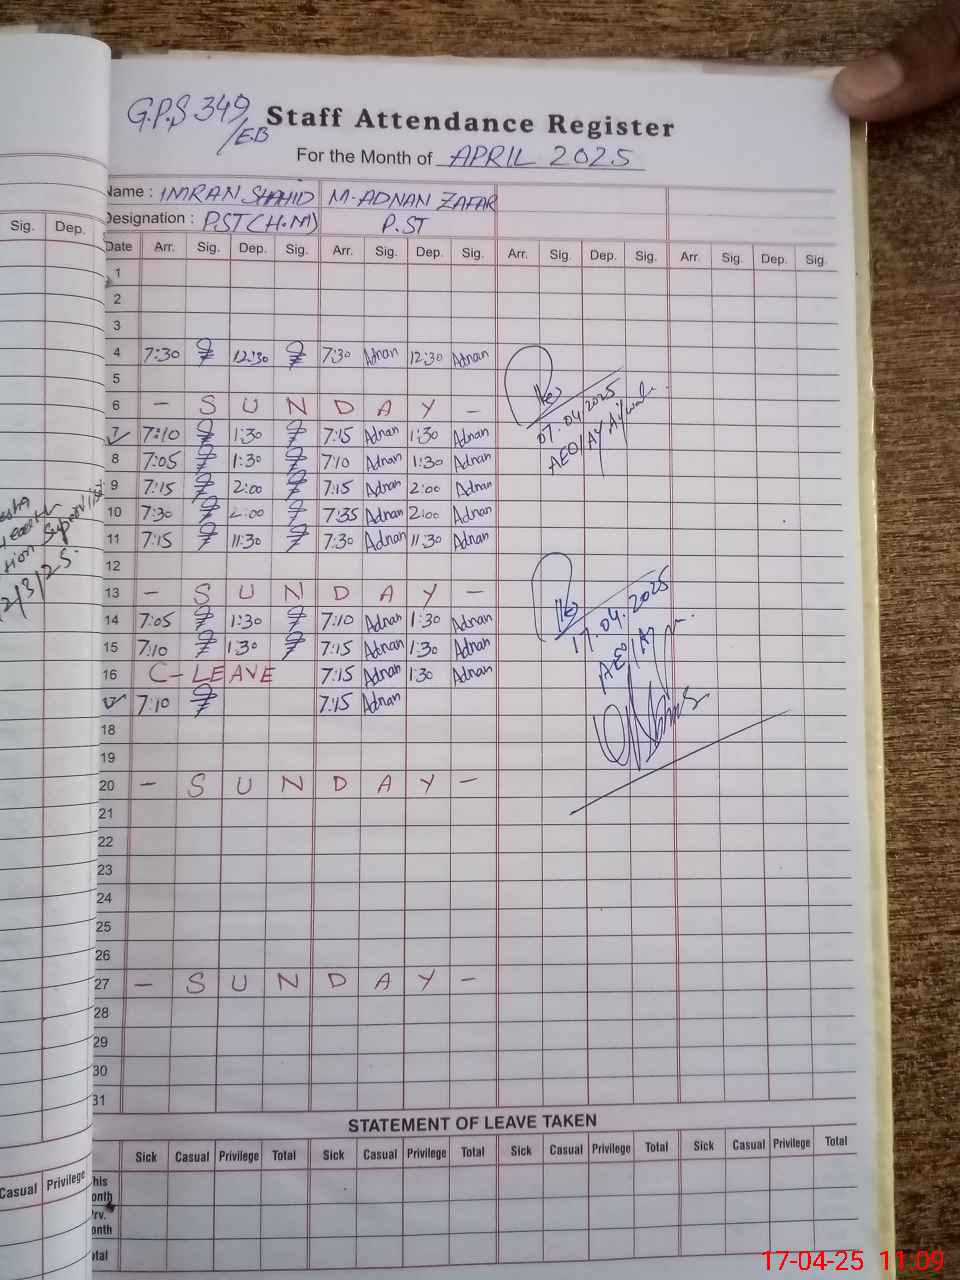 G.P.S 349/EB
Staff Attendance Register
For the Month of APRIL 2025
Name : IMRAN SHAHID M. ADNAN ZAFAR
Designation : PST (H.M) P.ST
Sig. Dep.
Date Arr. Sig. Dep. Sig. Arr. Sig. Dep. Sig. Arr. Sig. Dep. Sig. Arr. Sig. Dep. Sig.
1
2
3
4 7:30 12:30 7:30 Adnan 12:30 Adnan
5
6 - S U N D A Y -
7 7:10 1:30 7:15 Adnan 1:30 Adnan
07.04.2025
8 7:05 1:30 7:10 Adnan 1:30 Adnan
9 7:15 2:00 7:15 Adnan 2:00 Adnan
10 7:30 2:00 7:35 Adnan 2:00 Adnan
11 7:15 11:30 7:30 Adnan 11:30 Adnan
12
13 - S U N D A Y -
14 7:05 1:30 7:10 Adnan 1:30 Adnan
17.04.2025
15 7:10 1:30 7:15 Adnan 1:30 Adnan
16 C-LEAVE 7:15 Adnan 1:30 Adnan
7:10 7:15 Adnan
18
19
20 - S U N D A Y -
21
22
23
24
25
26
27 - S U N D A Y -
28
29
30
31
STATEMENT OF LEAVE TAKEN
Sick Casual Privilege Total Sick Casual Privilege Total Sick Casual Privilege Total Sick Casual Privilege Total
Casual Privilege
17-04-25 11:09